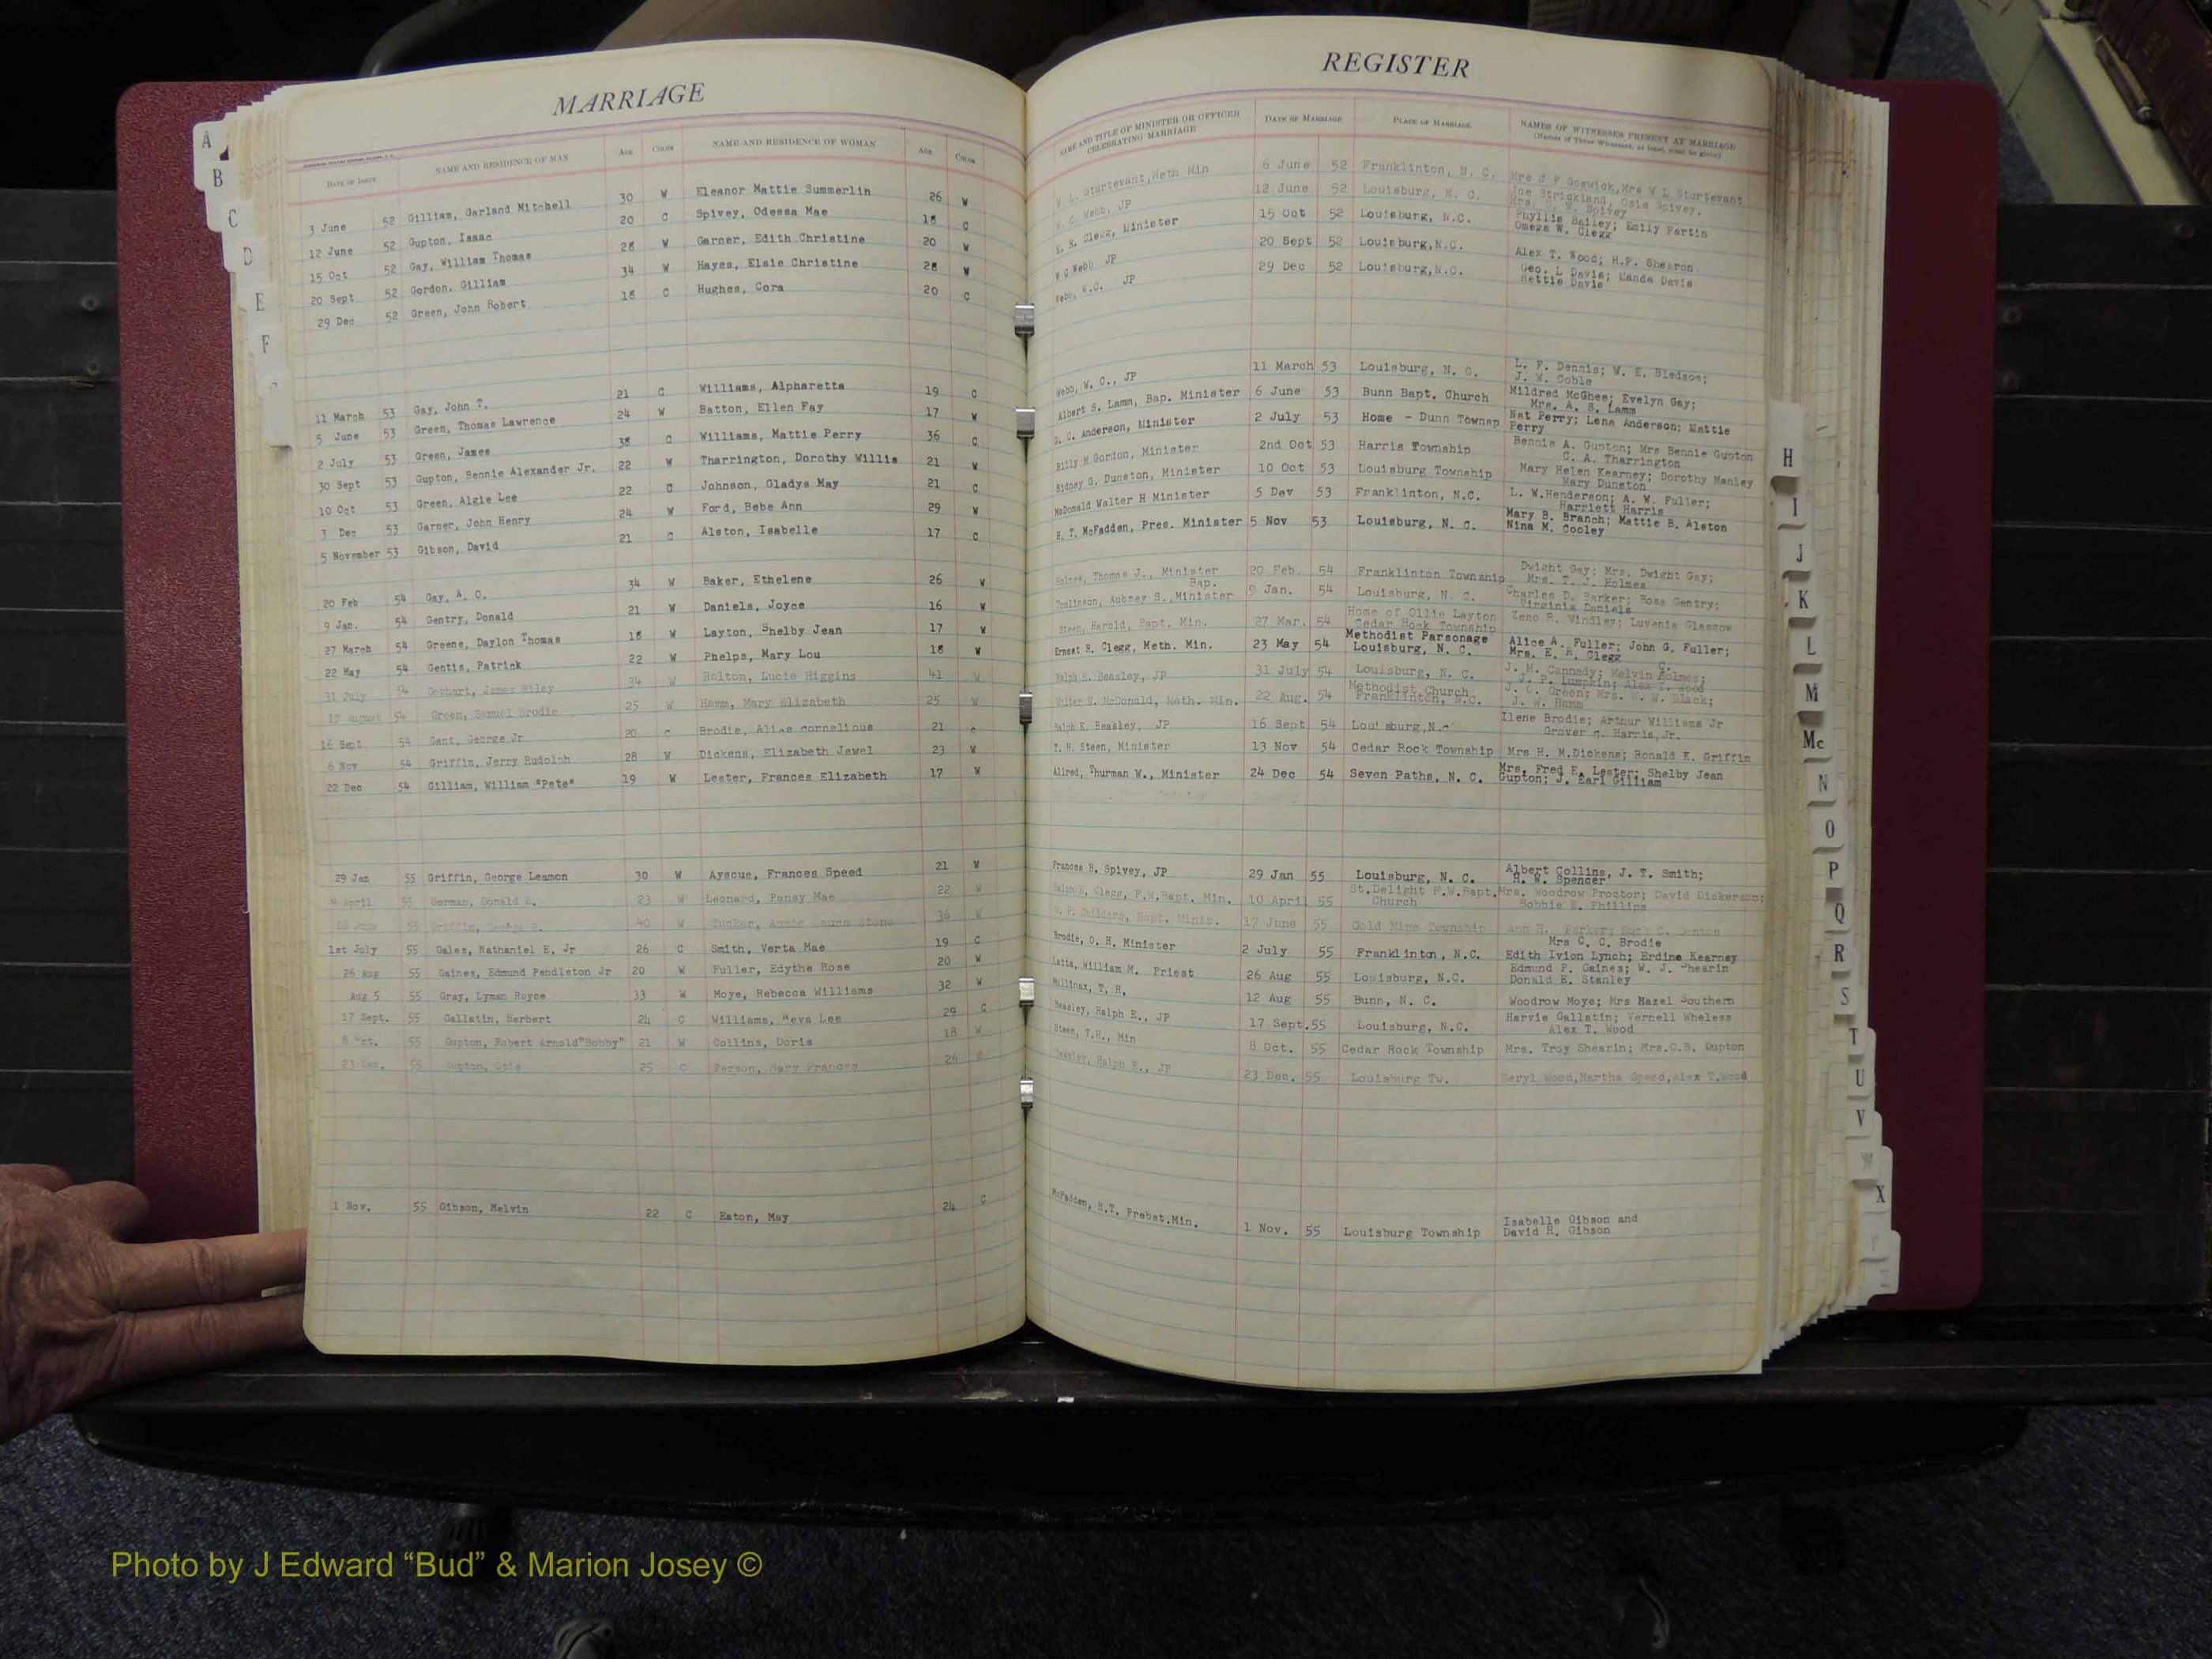 MARRIAGE
REGISTER
DATE OF ISSUE NAME AND RESIDENCE OF MAN AGE COLOR NAME AND RESIDENCE OF WOMAN AGE COLOR
NAME AND TITLE OF MINISTER OR OFFICER CELEBRATING MARRIAGE DATE OF MARRIAGE PLACE OF MARRIAGE NAMES OF WITNESSES PRESENT AT MARRIAGE
(Names of Three Witnesses, at least, must be given)
3 June 52 Gilliam, Garland Mitchell 30 W Eleanor Mattie Summerlin 26 W
12 June 52 Gupton, Isaac 20 C Spivey, Odessa Mae 18 C
15 Oct 52 Gay, William Thomas 28 W Garner, Edith Christine 20 W
20 Sept 52 Gordon, Gilliam 34 W Hayes, Elsie Christine 28 W
29 Dec 52 Green, John Robert 18 C Hughes, Cora 20 C
11 March 53 Gay, John T. 21 C Williams, Alpharetta 19 C
5 June 53 Green, Thomas Lawrence 24 W Batton, Ellen Fay 17 W
2 July 53 Green, James 38 C Williams, Mattie Perry 36 C
30 Sept 53 Gupton, Bennie Alexander Jr. 22 W Tharrington, Dorothy Willis 21 W
10 Oct 53 Green, Algie Lee 22 C Johnson, Gladys May 21 C
3 Dec 53 Garner, John Henry 24 W Ford, Bebe Ann 29 W
5 November 53 Gibson, David 21 C Alston, Isabelle 17 C
20 Feb 54 Gay, A. O. 34 W Baker, Ethelene 26 W
9 Jan. 54 Gentry, Donald 21 W Daniels, Joyce 16 W
27 March 54 Greene, Daylon Thomas 18 W Layton, Shelby Jean 17 W
22 May 54 Gentis, Patrick 22 W Phelps, Mary Lou 18 W
31 July 54 Gephart, James Riley 34 W Holton, Lucie Higgins 41 W
17 August 54 Green, Samuel Brodie 25 W Hamm, Mary Elizabeth 25 W
16 Sept 54 Gant, George Jr 20 c Brodie, Alice cornelious 21 c
6 Nov 54 Griffin, Jerry Rudolph 28 W Dickens, Elizabeth Jewel 23 W
22 Dec 54 Gilliam, William "Pete" 19 W Lester, Frances Elizabeth 17 W
29 Jan 55 Griffin, George Leamon 30 W Ayscue, Frances Speed 21 W
8 April 55 German, Donald E. 23 W Leonard, Pansy Mae 22 W
55 Griffin, 40 W Tucker, Annie Laura Stone 36 W
1st July 55 Gales, Nathaniel E. Jr 26 C Smith, Verta Mae 19 C
26 Aug 55 Gaines, Edmund Pendleton Jr 20 W Fuller, Edythe Rose 20 W
Aug 5 55 Gray, Lyman Royce 33 W Moye, Rebecca Williams 32 W
17 Sept. 55 Gallatin, Herbert 24 C Williams, Neva Lee 29 C
8 Oct. 55 Gupton, Robert Arnold"Bobby" 21 W Collins, Doris 18 W
23 Dec. 55 Gupton, Otis 25 C Person, Mary Frances 26 C
1 Nov. 55 Gibson, Melvin 22 C Eaton, May 24 C
W. L. Sturtevant, Meth Min 6 June 52 Franklinton, N. C. Mrs J F Goswick, Mrs W L Sturtevant
W. C. Webb, JP 12 June 52 Louisburg, N. C. Joe Strickland, Osie Spivey,
Mrs. Spivey
E. R. Clegg, Minister 15 Oct 52 Louisburg, N.C. Phyllis Bailey; Emily Partin
Omega W. Clegg
W C Webb JP 20 Sept 52 Louisburg,N.C. Alex T. Wood; H.P. Shearon
Webb, W.C. JP 29 Dec 52 Louisburg,N.C. Geo. L Davis; Manda Davis
Nettie Davis
Webb, W. C., JP 11 March 53 Louisburg, N. C. L. F. Dennis; W. E. Bledsoe;
J. W. Coble
Albert S. Lamm, Bap. Minister 6 June 53 Bunn Bapt. Church Mildred McGhee; Evelyn Gay;
Mrs. A. S. Lamm
G. C. Anderson, Minister 2 July 53 Home - Dunn Townsp Nat Perry; Lena Anderson; Mattie
Perry
Billy M Gordon, Minister 2nd Oct 53 Harris Township Bennie A. Gupton; Mrs Bennie Gupton
C. A. Tharrington
Sidney G. Dunston, Minister 10 Oct 53 Louisburg Township Mary Helen Kearney; Dorothy Manley
Mary Dunston
McDonald Walter H Minister 5 Dev 53 Franklinton, N.C. L. W.Henderson; A. W. Fuller;
Harriett Harris
H. T. McFadden, Pres. Minister 5 Nov 53 Louisburg, N. C. Mary B. Branch; Mattie B. Alston
Nina M. Cooley
Holmes, Thomas J., Minister Bap. 20 Feb. 54 Franklinton Township Dwight Gay; Mrs. Dwight Gay;
Mrs. T. J. Holmes
Tomlinson, Aubrey S., Minister 9 Jan. 54 Louisburg, N. C. Charles D. Barker; Rosa Gentry;
Virginia Daniels
Steen, Harold, Bapt. Min. 27 Mar. 54 Home of Ollie Layton Cedar Rock Township Zeno R. Windley; Luvenia Glasgow
Ernest R. Clegg, Meth. Min. 23 May 54 Methodist Parsonage Louisburg, N. C. Alice A. Fuller; John G. Fuller;
Mrs. E. R. Clegg
Ralph E. Beasley, JP 31 July 54 Louisburg, N. C. J. M. Cannady; Melvin C. Holmes;
J. P. Lumpkin; Alex T. Wood
Walter N. McDonald, Meth. Min. 22 Aug. 54 Methodist Church Franklinton, N.C. J. C. Green; Mrs. W. W. Black;
J. W. Hamm
Ralph E. Beasley, JP 16 Sept 54 Louisburg,N.C Ilene Brodie; Arthur Williams Jr
Grover C. Harris,Jr.
T. H. Steen, Minister 13 Nov 54 Cedar Rock Township Mrs H. M.Dickens; Ronald K. Griffin
Allred, Thurman W., Minister 24 Dec 54 Seven Paths, N. C. Mrs. Fred E. Lester; Shelby Jean
Gupton; J. Earl Gilliam
Frances B. Spivey, JP 29 Jan 55 Louisburg, N. C. Albert Collins, J. T. Smith;
H. W. Spencer
Ralph E. Clegg, F.W.Bapt. Min. 10 April 55 St.Delight F.W.Bapt. Church Mrs. Woodrow Proctor; David Dickerson;
Bobbie E. Phillips
W. P. Childers, Bapt. Minis. 17 June 55 Gold Mine Township Ann H. Parker; Buck C. Denton
Mrs C. C. Brodie
Brodie, O. H. Minister 2 July 55 Franklinton, N.C. Edith Ivion Lynch; Erdine Kearney
Latta, William M. Priest 26 Aug 55 Louisburg, N.C. Edmund P. Gaines; W. J. Shearin
Donald E. Stanley
Mullinax, T. R. 12 Aug 55 Bunn, N. C. Woodrow Moye; Mrs Hazel Southern
Beasley, Ralph E., JP 17 Sept.55 Louisburg, N.C. Harvie Gallatin; Vernell Wheless
Alex T. Wood
Steen, T.H., Min 8 Oct. 55 Cedar Rock Township Mrs. Troy Shearin; Mrs.O.B. Gupton
Beasley, Ralph E., JP 23 Dec. 55 Louisburg Tw. Beryl Wood,Martha Speed,Alex T.Wood
McFadden, H.T. Prebst.Min. 1 Nov. 55 Louisburg Township Isabelle Gibson and
David H. Gibson
A
B
C
D
E
F
H
I
J
K
L
M
Mc
N
O
P
Q
R
S
T
U
V
W
X
Photo by J Edward “Bud” & Marion Josey ©